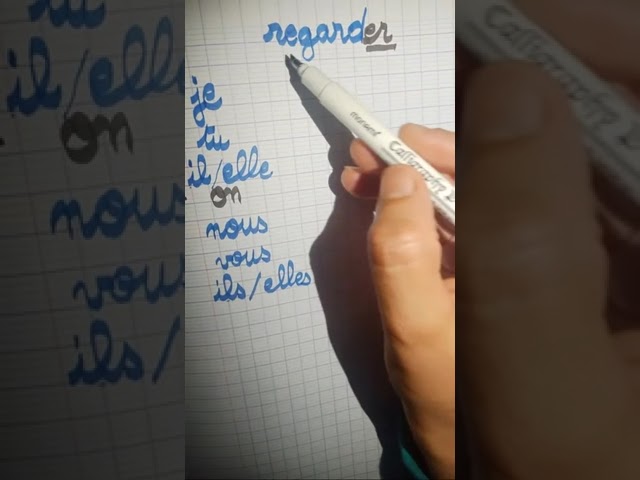 regarder
je
tu
il/elle
on
nous
vous
ils/elles
Calligraphy